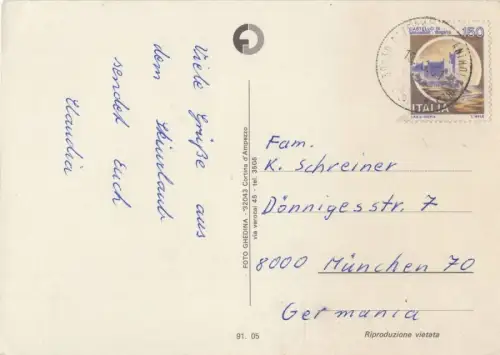 Viele Grüße aus
dem Skiurlaub
sendet Euch
Klaudia
FOTO GHEDINA - 32043 Cortina d'Ampezzo
via verocai 45 - tel. 3908
150
CASTELLO DI
ITALIA
Fam.
K. Schreiner
Dönnigesstr. 7
8000 München 70
Germania
91. 05
Riproduzione vietata